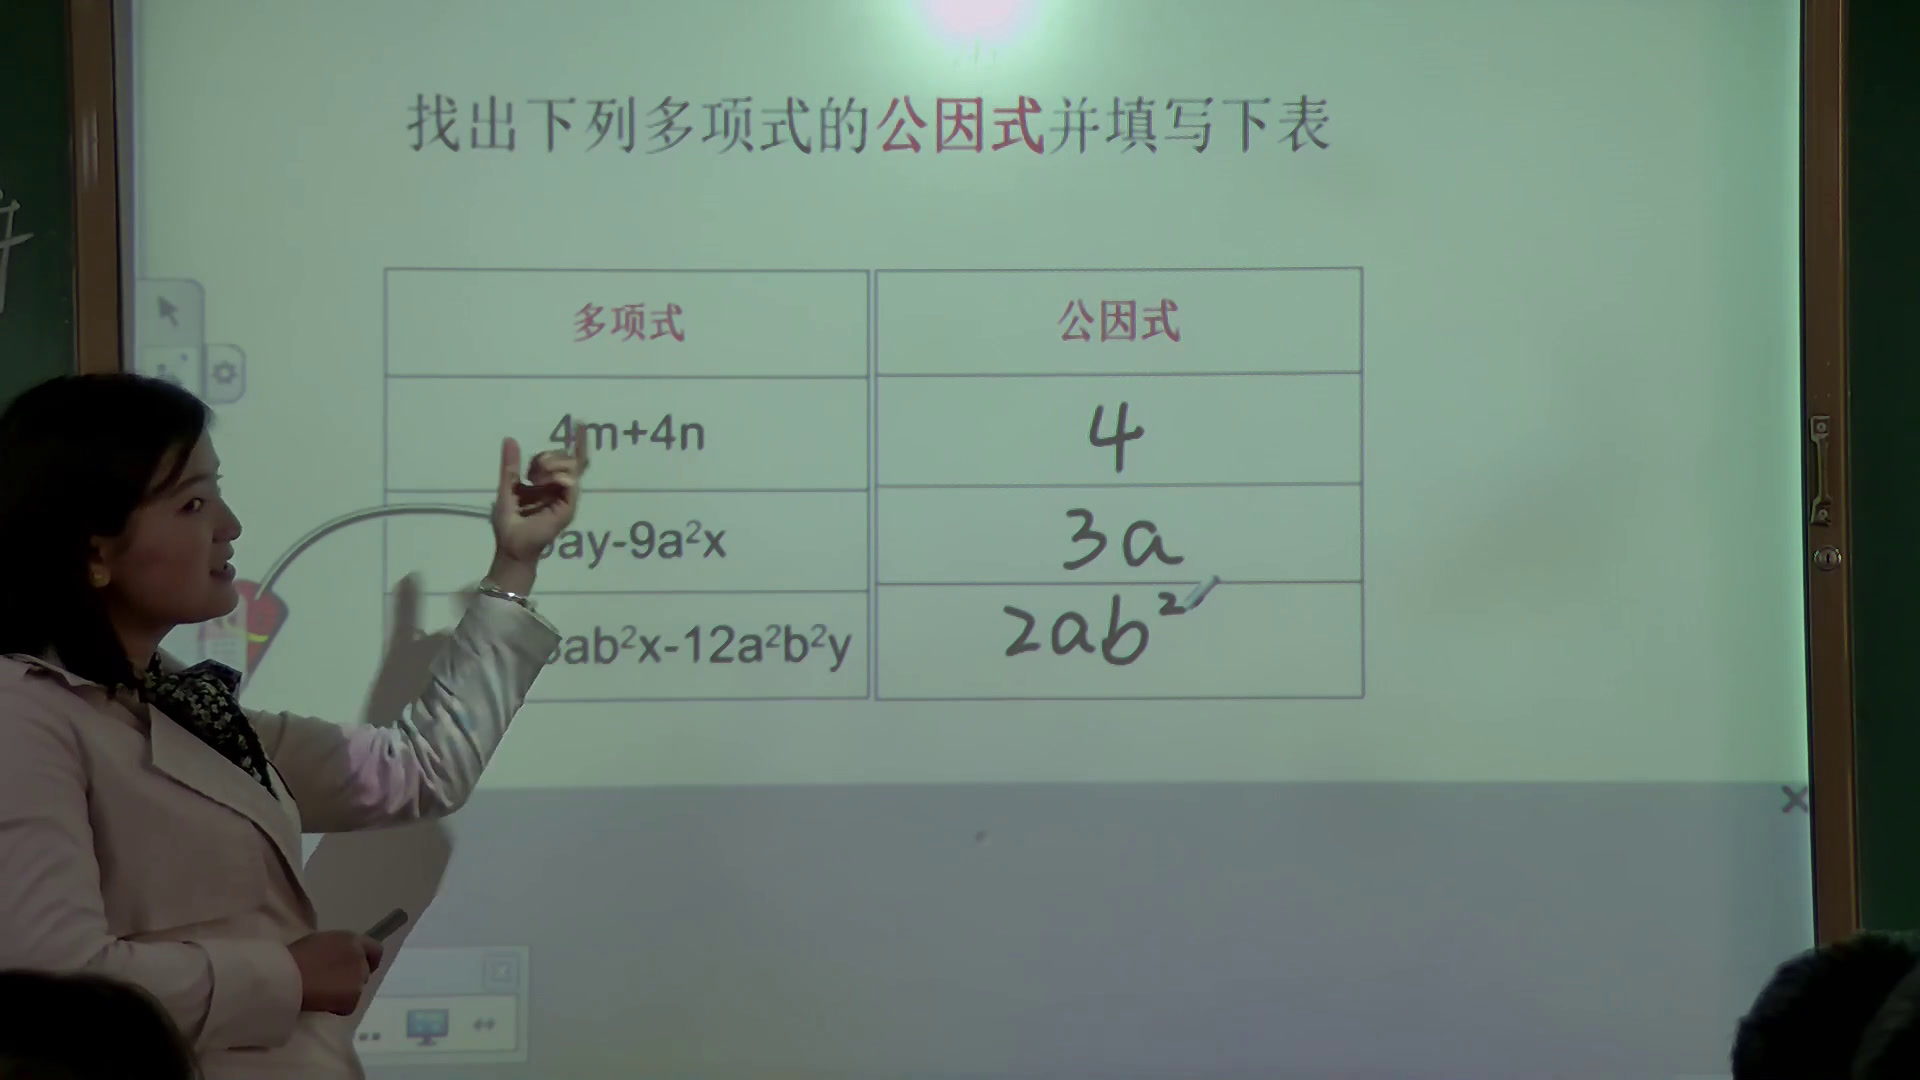 找出下列多项式的公因式并填写下表
多项式 公因式
4m+4n 4
ay-9a²x 3a
ab²x-12a²b²y 2ab²